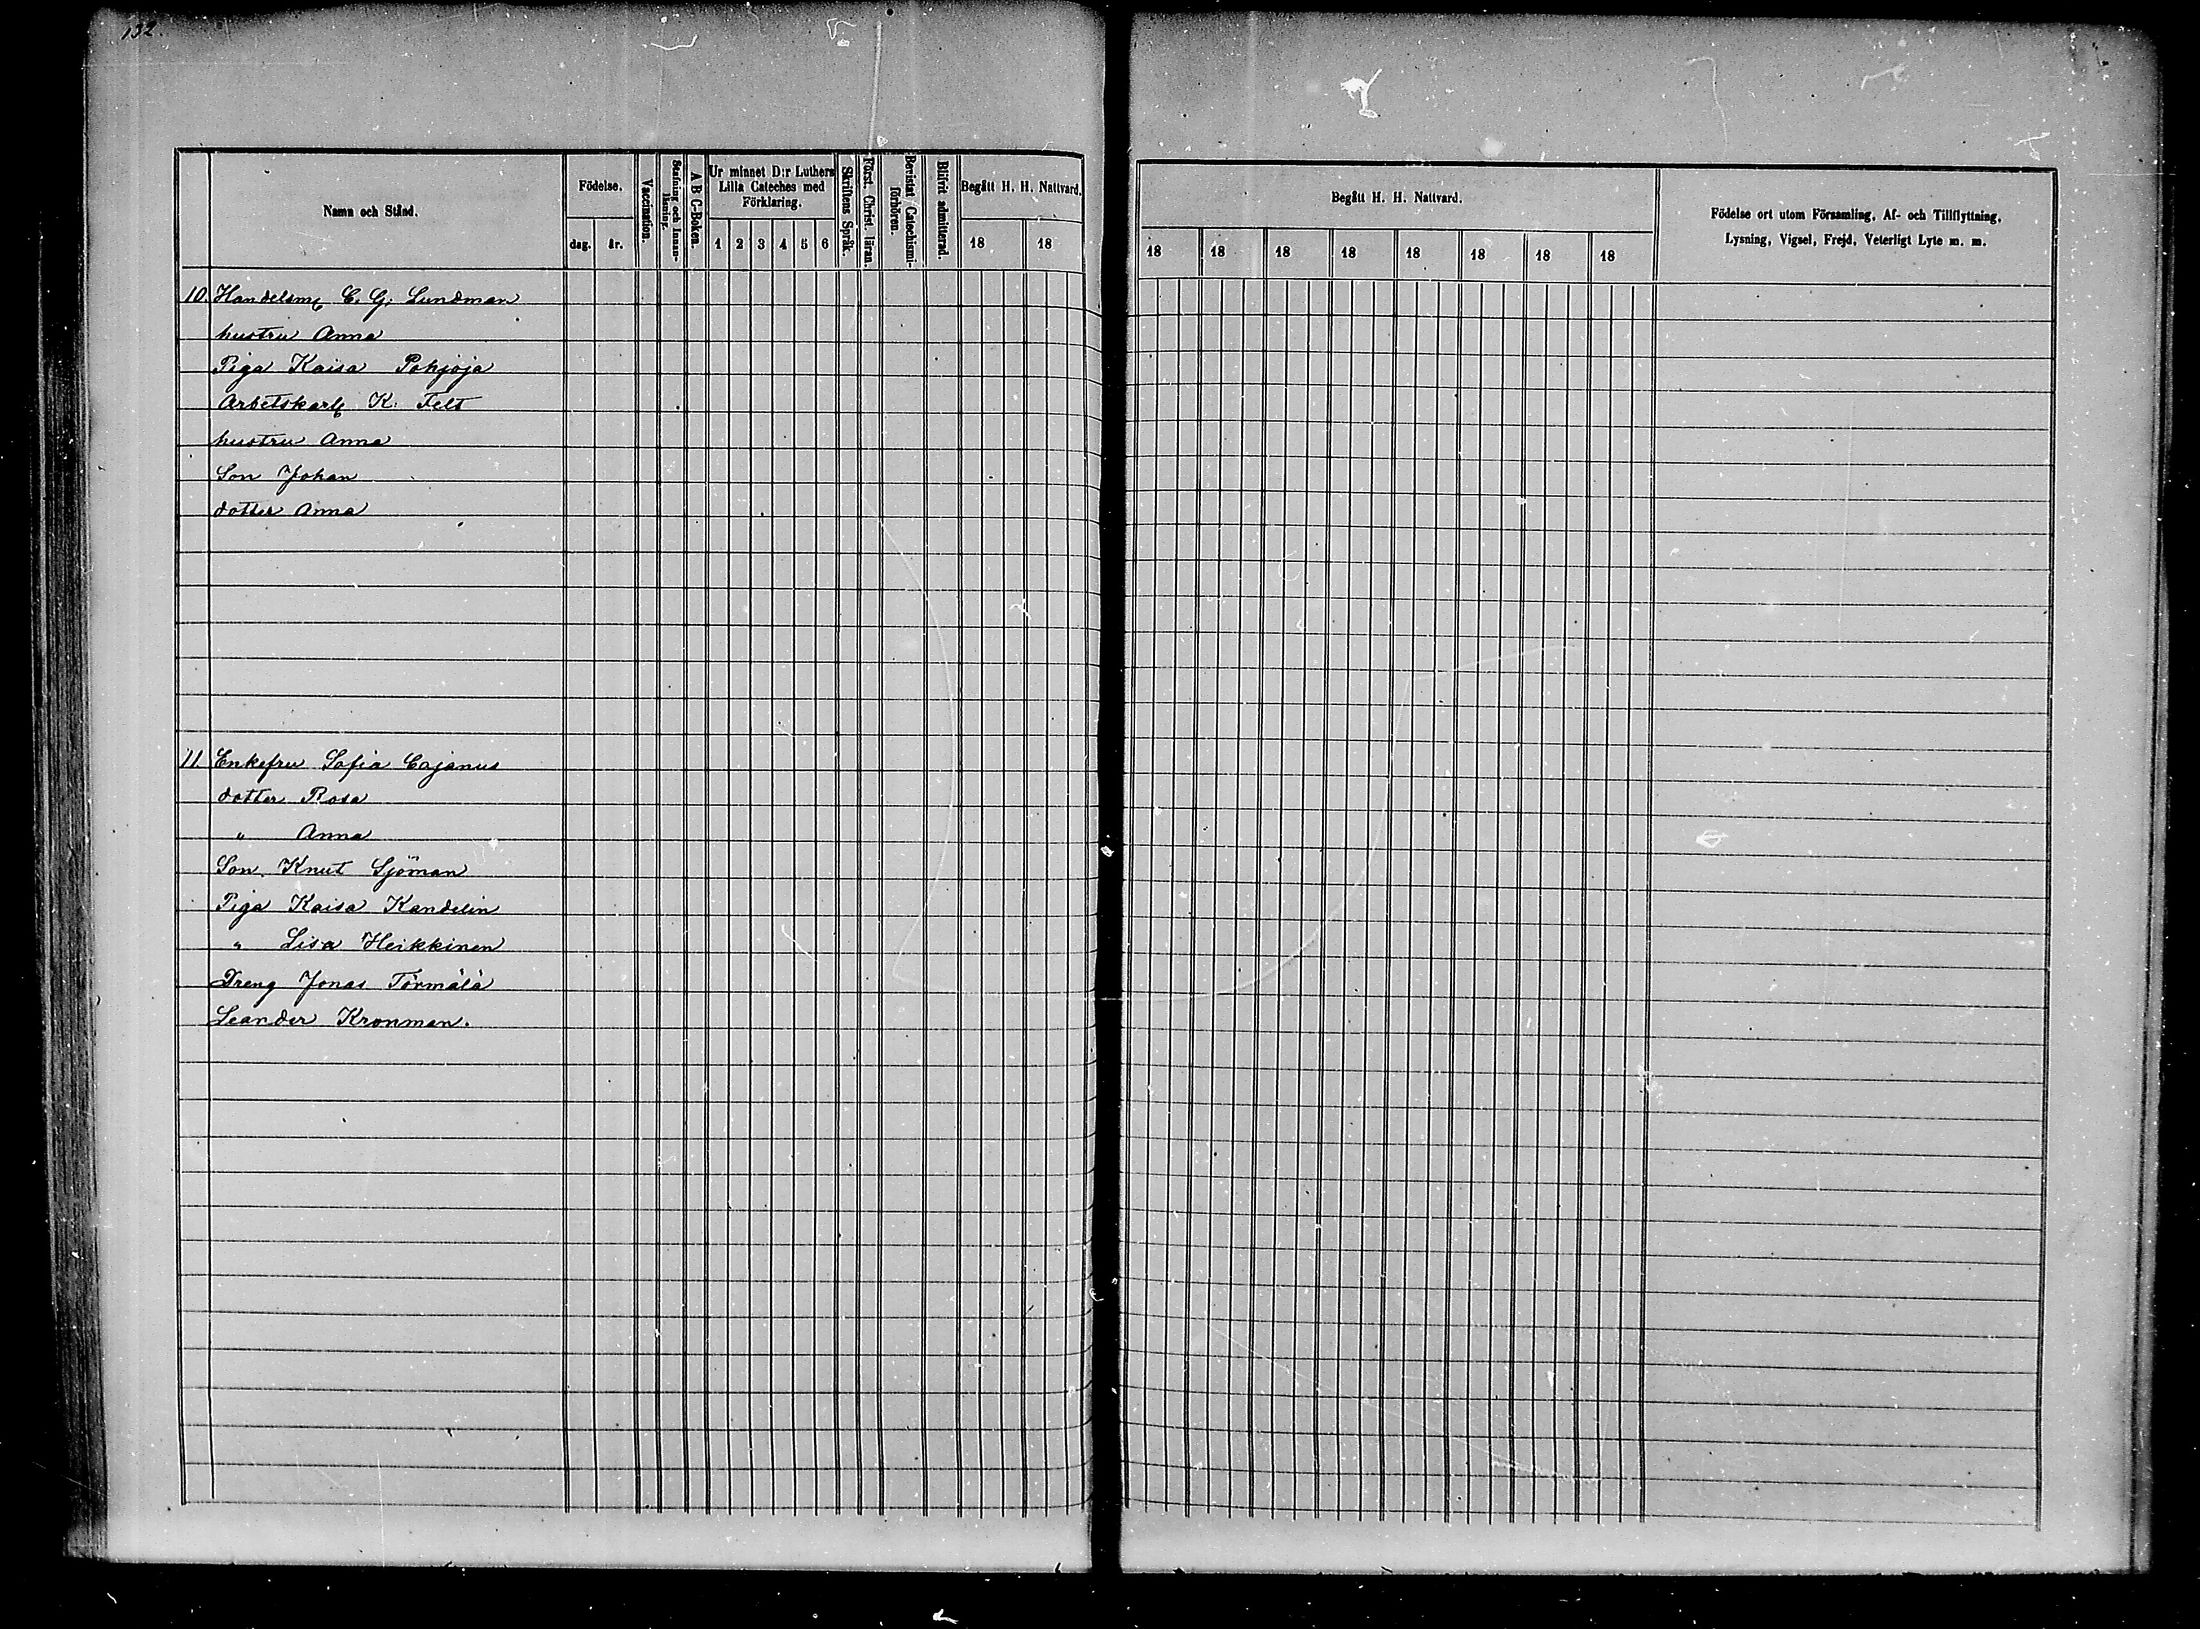 132.
Namn och Stånd.
Födelse.
dag. år.
Vaccination.
Stafning och Innan-läsning.
A B C-Boken.
Ur minnet D:r Luthers
Lilla Cateches med
Förklaring.
1 2 3 4 5 6
Skriftens Språk.
Först. Christ. läran.
Bevistat Catechismi-förhören.
Blifvit admitterad.
Begått H. H. Nattvard.
18 18
Begått H. H. Nattvard.
18 18 18 18 18 18 18 18
Födelse ort utom Församling, Af- och Tillflyttning,
Lysning, Vigsel, Frejd, Veterligt Lyte m. m.
10. Handelsm C. G. Lundman
hustru Anna
Piga Kaisa Pohjoja
Arbetskarl K. Felt
hustru Anna
Son Johan
dotter Anna
11. Enkefru Sofia Cajanus
dotter Rosa
" Anna
Son Knut Sjöman
Piga Kaisa Kandelin
" Lisa Heikkinen
Dreng Jonas Törmälä
Leander Kronman.